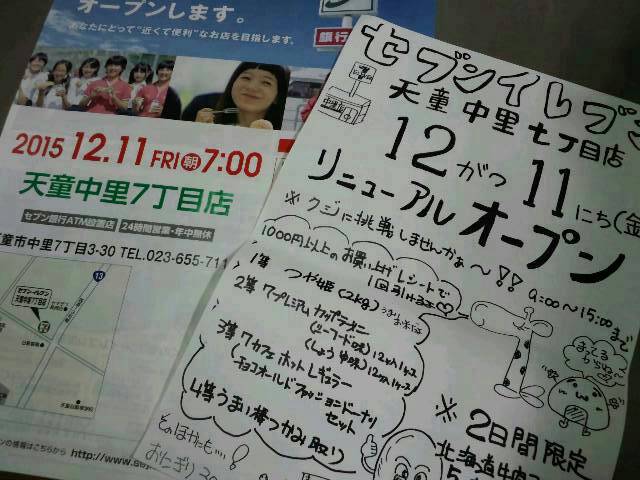 オープンします。
あなたにとって"近くて便利"なお店を目指します。
銀行
2015 12.11 FRI 朝 7:00
天童中里7丁目店
セブン銀行ATM設置店 24時間営業・年中無休
童市中里7丁目3-30 TEL.023-655-711
13
セブン-イレブン
天童中里7丁目店
ンの情報はこちらから http://www.se
セブンイレブン
天童中里七丁目店
12がつ11にち(金
リニューアルオープン
※クジに挑戦しませんかぁ〜!!
9:00〜15:00まで
1000円以上のお買上げレシートで
1回引けるョ♡
1等 つや姫(2kg)
2等 7プレミアムカップラーメン
(シーフード味)12コ入1ケース
(しょうゆ味)12コ入1ケース
3等 7カフェホットレギュラー
(チョコオールドファッションドーナツ
セット
4等うまい棒つかみ取り
そのほかにも…!
おにぎり
※2日間限定
北海道牛